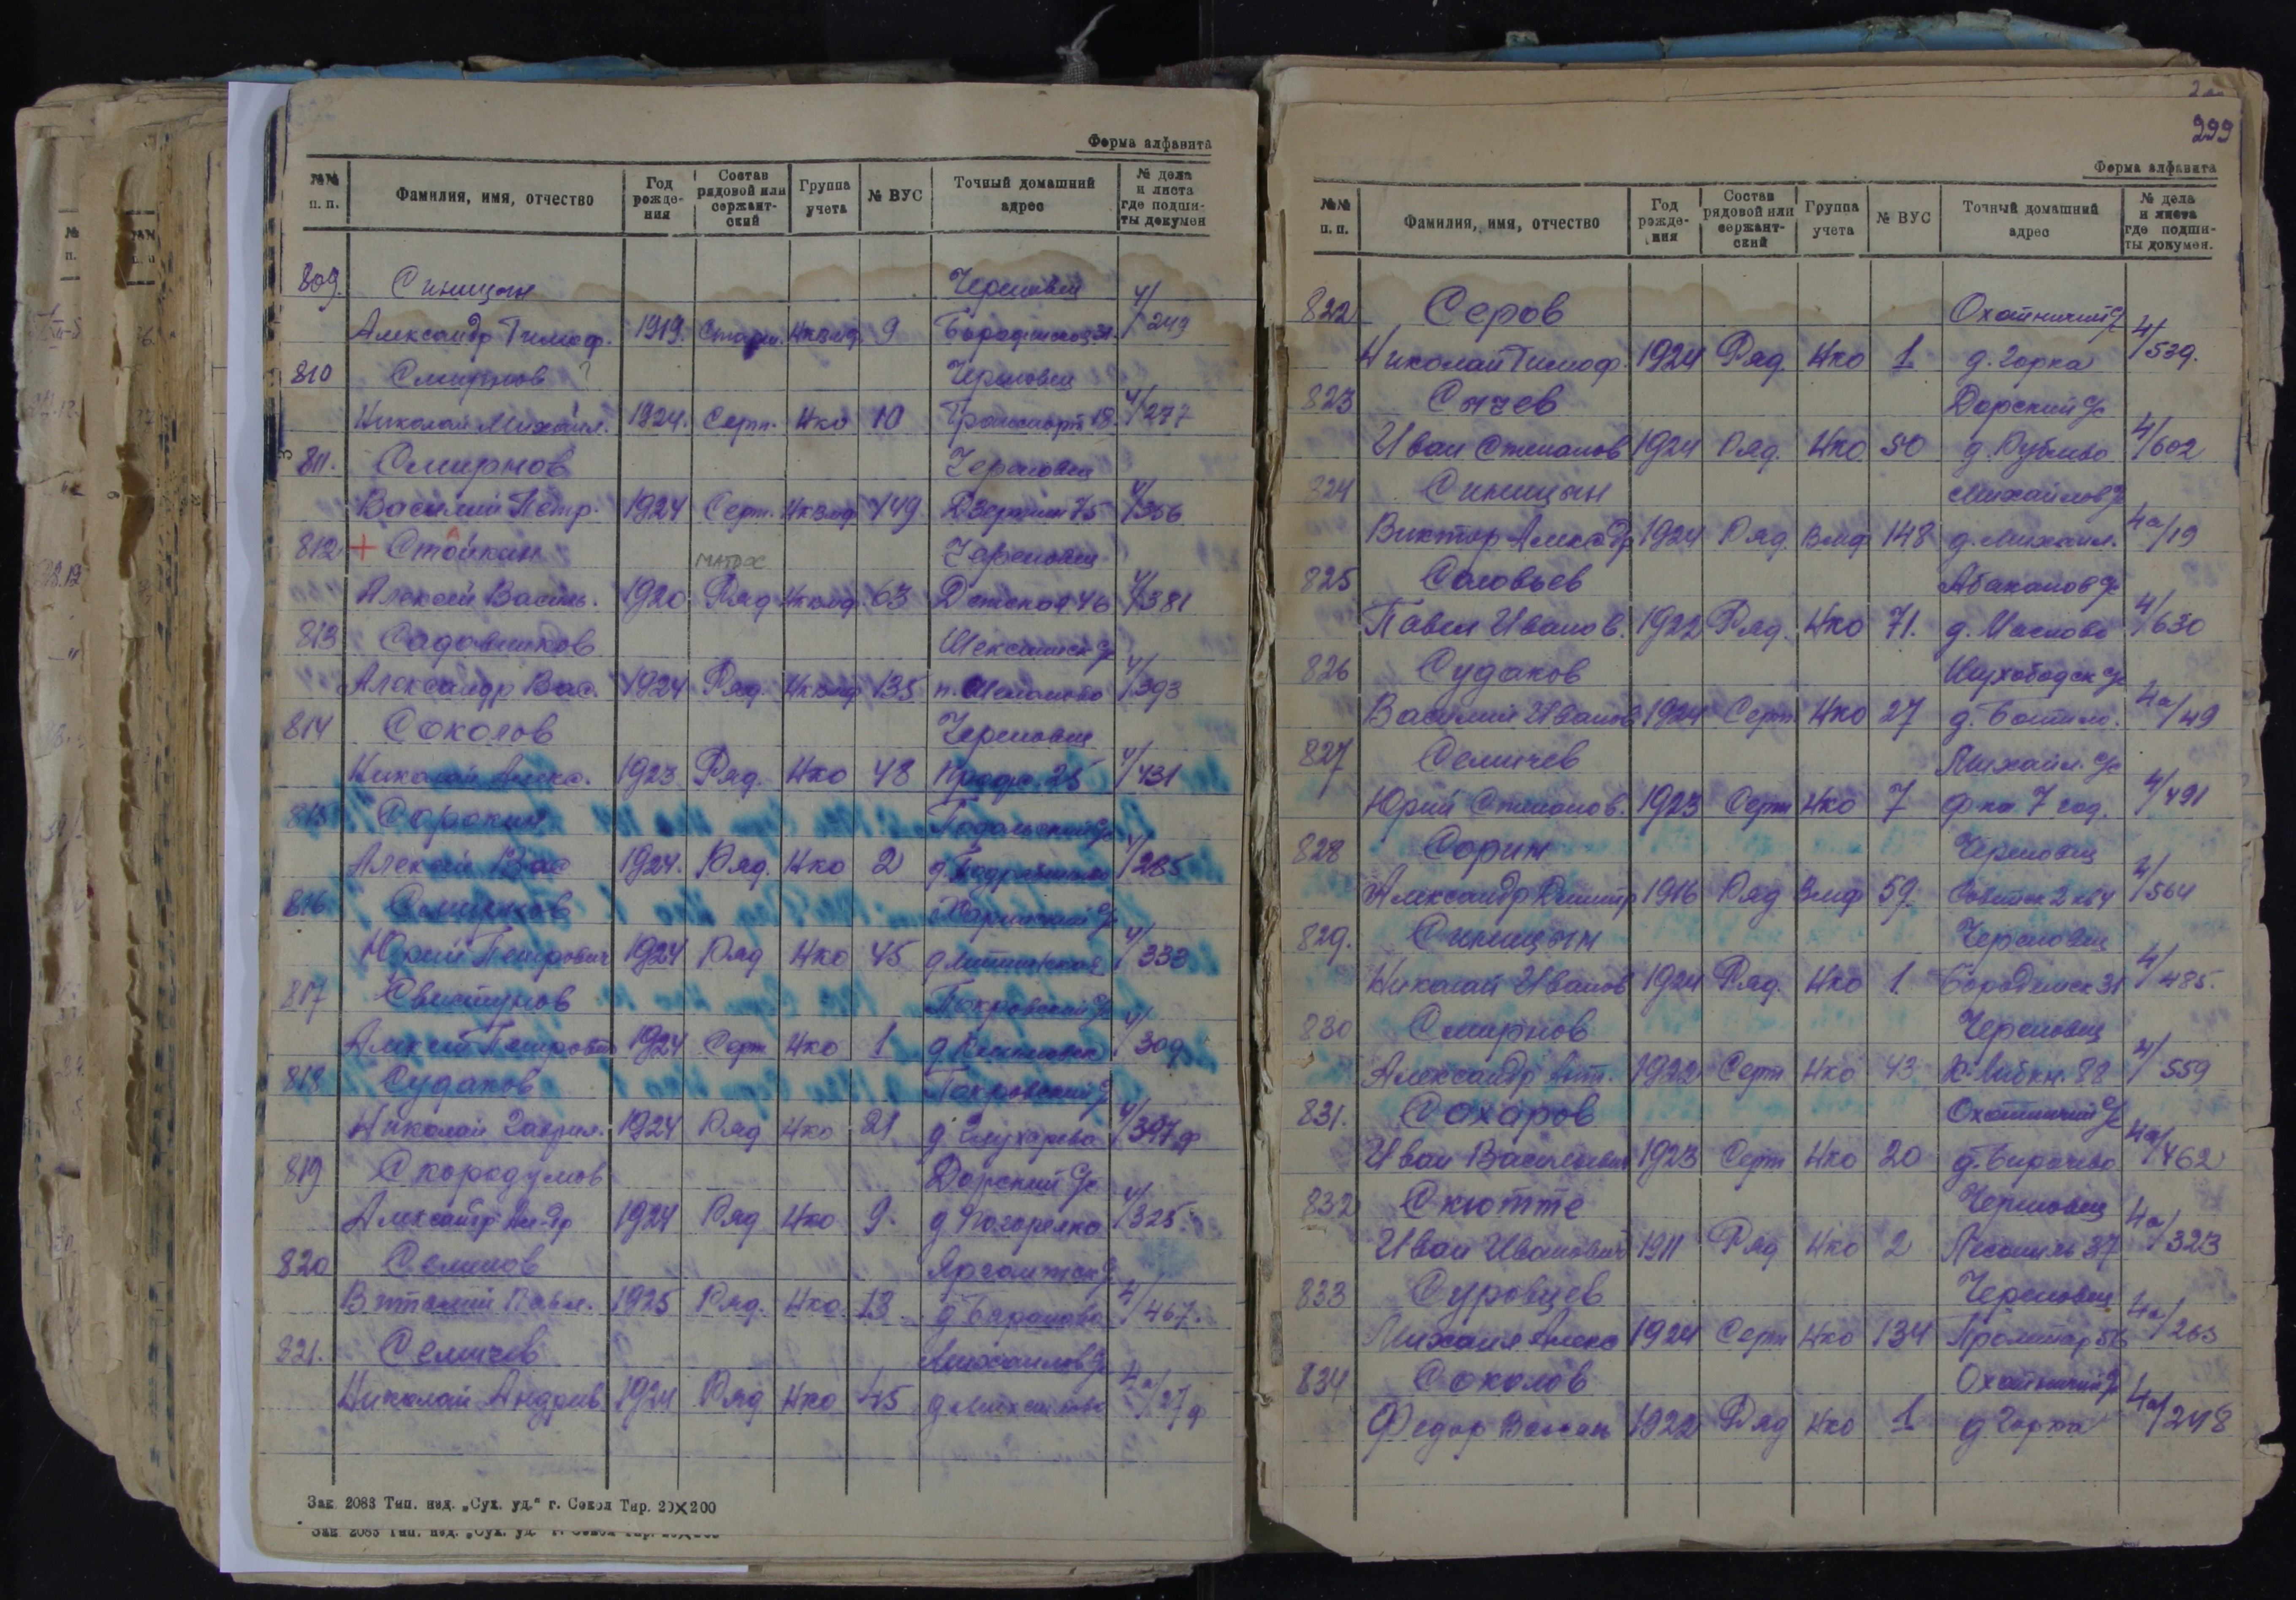 Форма алфавита
№№ п. п. Фамилия, имя, отчество Год рожде- ния Состав рядовой или сержант- ский Группа учета № ВУС Точный домашний адрес № дела и листа где подши- ты докумен
809. Синицын Череповец 4/
Александр Тимоф. 1919. Старш. Нквмф 9 249
810 Смирнов ? Череповец
Николай Михайл. 1924. Серж. Нко 10 Транспорт 18 4/277
811. Смирнов Череповец
Василий Петр. 1924 Серж. Нквмф 449 Дзержин 75 4/356
812 + Стойкин Череповец
матрос
Алексей Василь. 1920 Ряд Нквмф 63 Детская 46 4/381
813 Садовников Шекснинск с/с
Александр Вас. 1924 Ряд. Нквмф 135 4/393
814 Соколов Череповец
Николай Алекс. 1923 Ряд. Нко 48 Профс. 25 4/431
815 Сорокин Подольский с/с
Алексей Вас 1924. Ряд. Нко 2 4/285
816 Смирнов
Юрий Петрович 1924 Ряд Нко 45 4/333
817 Свистунов Покровский с/с
Алексей Петрович 1924 Серж Нко 1 4/309
818 Судаков Покровский с/с
Николай Гаврил. 1924 Ряд Нко 21 д. Глухарево
819 Скородумов Дорский с/с
Александр Ал-др 1924 Ряд Нко 9. д Погорелка 4/325.
820 Семенов Яргомжск с/с
Витталий Павл. 1925 Ряд. Нко. 13 д Бараново 4/467.
821. Семичев Михайлов с/с
Николай Андреев 1924 Ряд Нко 45 4а/27
Зак. 2083 Тип. изд. „Сух. уд.“ г. Сокол Тир. 20×200
Зак 2083 Тип. изд. „Сух. уд
299
Форма алфавита
№№ п. п. Фамилия, имя, отчество Год рожде- ния Состав рядовой или сержант- ский Группа учета № ВУС Точный домашний адрес № дела и листа где подши- ты докумен.
822 Серов Охотничий с/с
Николай Тимоф. 1924 Ряд. Нко 1 д. Горка 4/539.
823 Сычев Дорский с/с
Иван Степанов 1924 Ряд. Нко 50 4/602
824 Синицын Михайлов с/с
Виктор Алексдр 1924 Ряд Вмф 148 д. Михайл. 4а/19
825 Соловьев Абаканов с/с
Павел Иванов. 1922 Ряд. Нко 71. 4/630
826 Судаков Шухободск с/с
Василий Иванов 1924 Серж Нко 27 4а/49
827 Семичев Михайл. с/с
Юрий Степанов. 1923 Серж Нко 7 ф ка 7 год. 4/491
828 Сорин Череповец
Александр Дмитр 1916 Ряд Вмф 59. Советск 2 кв 4 4/564
829. Синицын Череповец
Николай Иванов 1924 Ряд. Нко 1. Бородинск 31 4/485.
830 Смирнов Череповец
Александр Ант. 1922 Серж Нко 43 К-Либкн. 82 4/559
831. Сахаров Охотничий с/с
Иван Васильевич 1923 Серж Нко 20 4а/462
832 Скютте Череповец
Иван Иванович 1911 Ряд Нко 2 37 4а/323
833 Суровцев Череповец
Михаил Алекс 1924 Серж Нко 134 Пролетар 56 4а/263
834 Соколов Охотничий с/с
Федор 1922 Ряд Нко 1 д Горка 4а/248